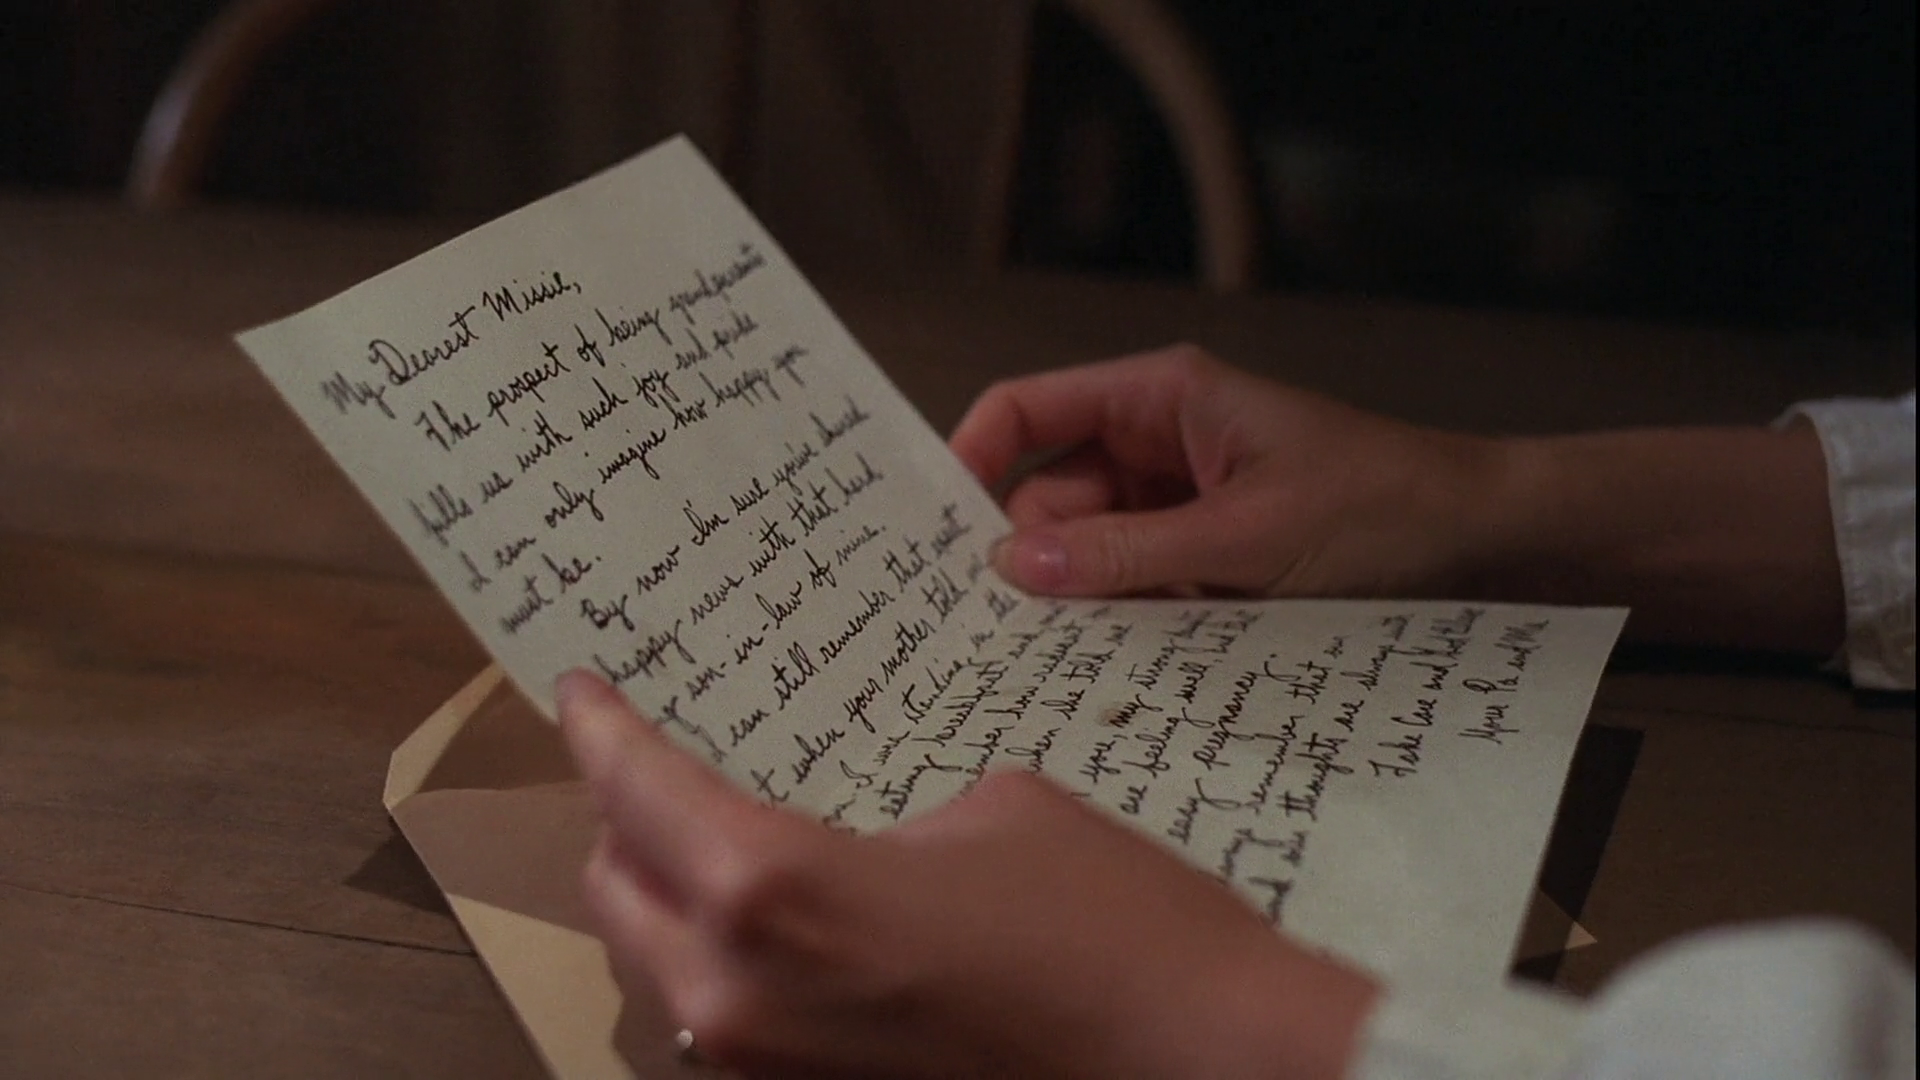 My Dearest Missie,
The prospect of being grandparents
fills us with such joy and pride
I can only imagine how happy you
must be.
By now I'm sure you've shared
happy news with that hard
son-in-law of mine.
I can still remember that
when your mother told
I was standing in the
eating breakfast and
remember how radiant
when she told me
you, my strong
are feeling well,
easy pregnancy.
remember that our
and thoughts are always with
Take Care and God Bless
Your Pa and Ma